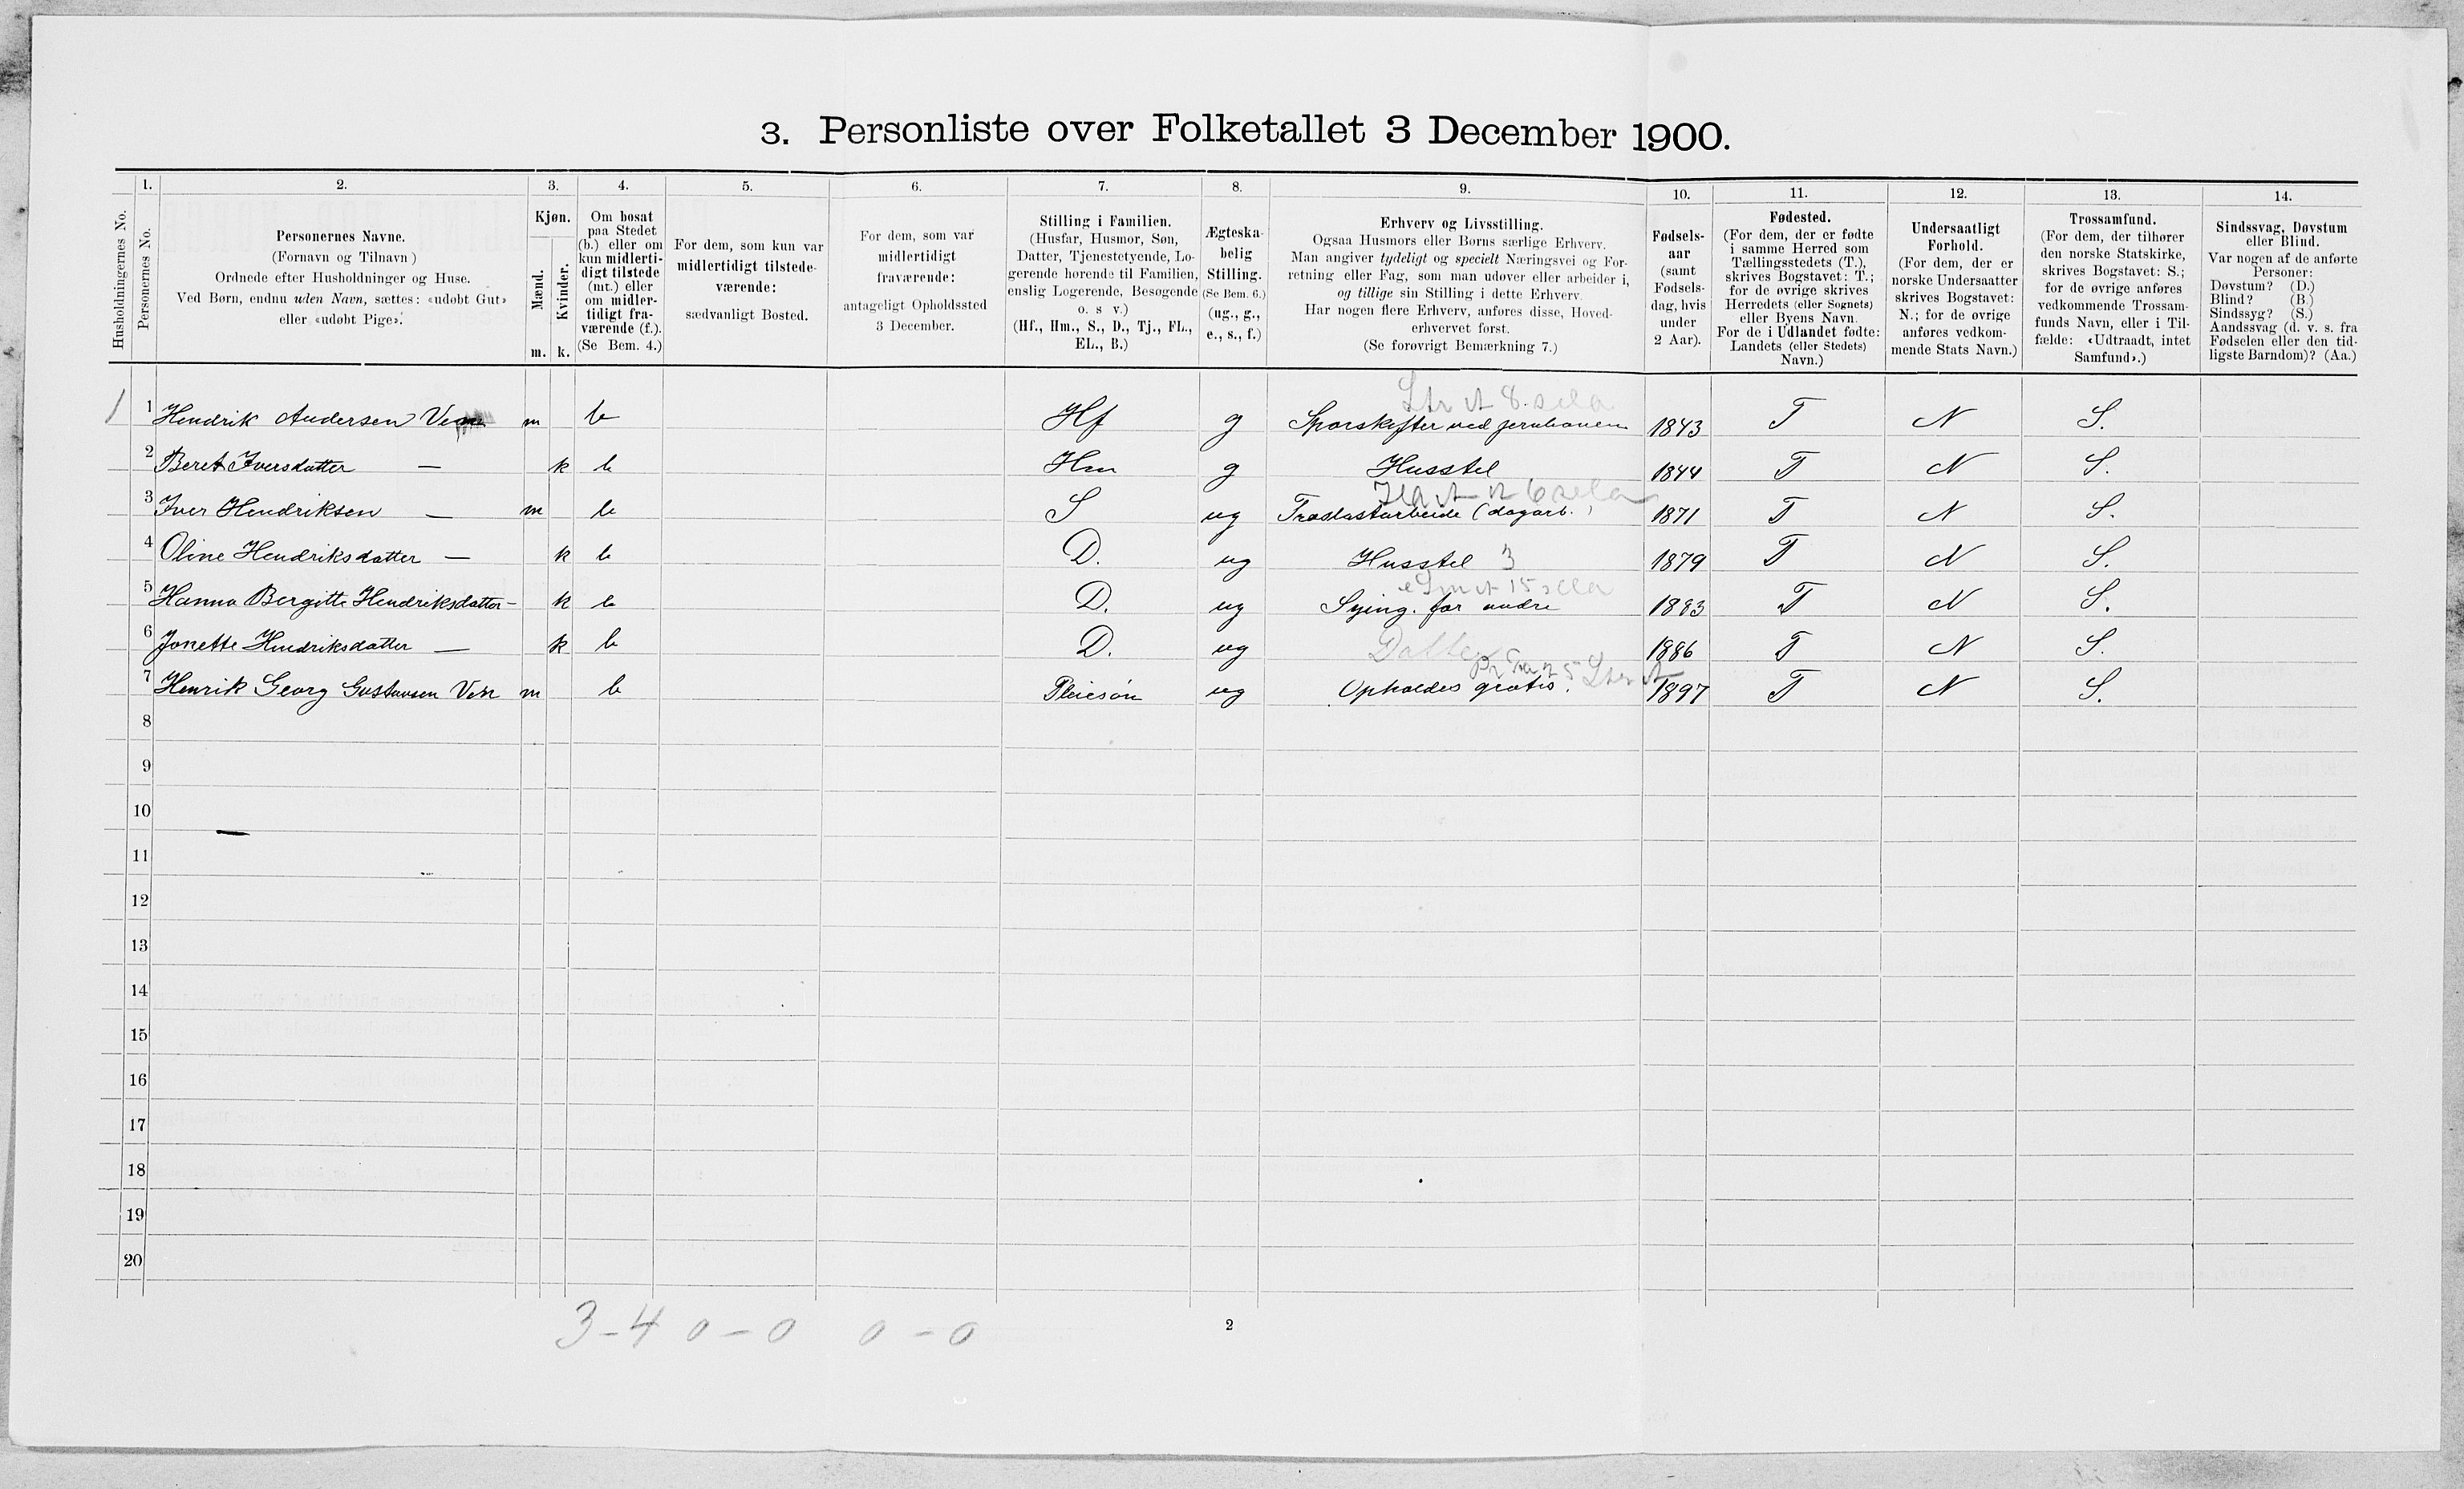 3. Personliste over Folketallet 3 December 1900.
1. 2. 3. 4. 5. 6. 7. 8. 9. 10. 11. 12. 13. 14.
Husholdningernes No.
Personernes No.
Personernes Navne.
(Fornavn og Tilnavn)
Ordnede efter Husholdninger og Huse.
Ved Børn, endnu uden Navn, sættes: «udøbt Gut»
eller «udøbt Pige».
Kjøn.
Mænd.
Kvinder.
m. k.
Om bosat
paa Stedet
(b.) eller om
kun midlerti-
digt tilstede
(mt.) eller
om midler-
tidigt fra-
værende (f.).
(Se Bem. 4.)
For dem, som kun var
midlertidigt tilstede-
værende:
sædvanligt Bosted.
For dem, som var
midlertidigt
fraværende:
antageligt Opholdssted
3 December.
Stilling i Familien.
(Husfar, Husmor, Søn,
Datter, Tjenestetyende, Lo-
gerende hørende til Familien,
enslig Logerende, Besøgende
o. s v.)
(Hf., Hm., S., D., Tj., FL.,
EL., B.)
Ægteska-
belig
Stilling.
(Se Bem. 6.)
(ug., g.,
e., s., f.)
Erhverv og Livsstilling.
Ogsaa Husmors eller Børns særlige Erhverv.
Man angiver tydeligt og specielt Næringsvei og For-
retning eller Fag, som man udøver eller arbeider i,
og tillige sin Stilling i dette Erhverv.
Har nogen flere Erhverv, anføres disse, Hoved-
erhvervet først.
(Se forøvrigt Bemærkning 7.)
Fødsels-
aar
(samt
Fødsels-
dag, hvis
under
2 Aar).
Fødested.
(For dem, der er fødte
i samme Herred som
Tællingsstedets (T.),
skrives Bogstavet: T.;
for de øvrige skrives
Herredets (eller Sognets)
eller Byens Navn.
For de i Udlandet fødte:
Landets (eller Stedets)
Navn.)
Undersaatligt
Forhold.
(For dem, der er
norske Undersaatter
skrives Bogstavet:
N.; for de øvrige
anføres vedkom-
mende Stats Navn.)
Trossamfund.
(For dem, der tilhører
den norske Statskirke,
skrives Bogstavet: S.;
for de øvrige anføres
vedkommende Trossam-
funds Navn, eller i Til-
fælde: «Udtraadt, intet
Samfund».)
Sindssvag, Døvstum
eller Blind.
Var nogen af de anførte
Personer:
Døvstum? (D.)
Blind? (B.)
Sindssyg? (S.)
Aandssvag (d. v. s. fra
Fødselen eller den tid-
ligste Barndom)? (Aa.)
1 1 Hendrik Andersen m b Hf g Sporskifter ved jernbanen 1843 T N S.
2 Beret Iversdatter — k b Hm g Husstel 1844 T N S.
3 Iver Hendriksen — m b S ug Trælastarbeide (dagarb.) 1871 T N S.
4 Oline Hendriksdatter — k b D. ug Husstel 3 1879 T N S.
5 Hanna Bergitte Hendriksdatter — k b D. ug Sying. for andre 1883 T N S.
6 Jonette Hendriksdatter — k b D. ug Datter 1886 T N S.
7 Henrik Georg Gustavsen m b Pleiesøn ug Opholdes gratis. 1897 T N S.
8
9
10
11
12
13
14
15
16
17
18
19
20
3 - 4 0 - 0 0 - 0
2